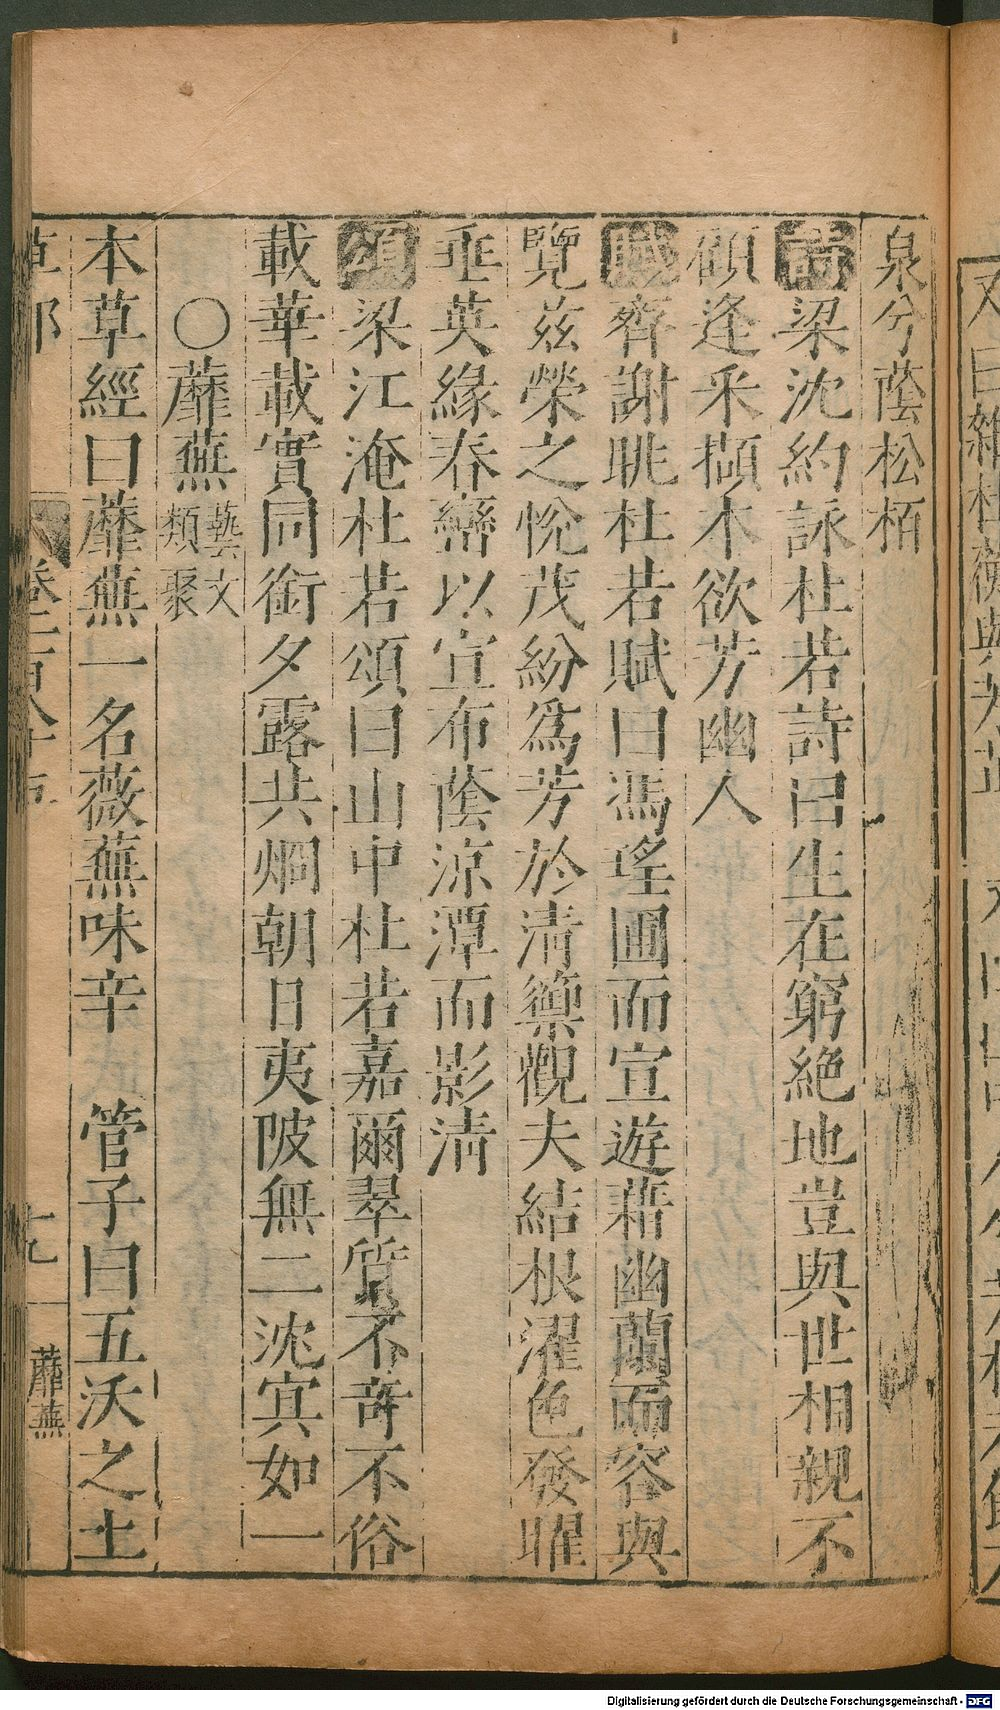 泉兮蔭松栢
詩梁沈約詠杜若詩曰生在窮絶地豈與世相親不
顧逢采擷本欲芳幽人
賦齊謝眺杜若賦曰馮瑤圃而宣遊藉幽蘭而容與
覽茲榮之悅茂紛爲芳於清籞觀夫結根濯色發曜
垂英緣春巒以宣布蔭涼潭而影清
頌梁江淹杜若頌曰山中杜若嘉爾翠質不奇不俗
載華載實同銜夕露共烱朝日夷陂無二沈冥如一
○蘼蕪藝文類聚
本草經曰蘼蕪一名薇蕪味辛 管子曰五沃之土
草部
蘼蕪
Digitalisierung gefördert durch die Deutsche Forschungsgemeinschaft - DFG